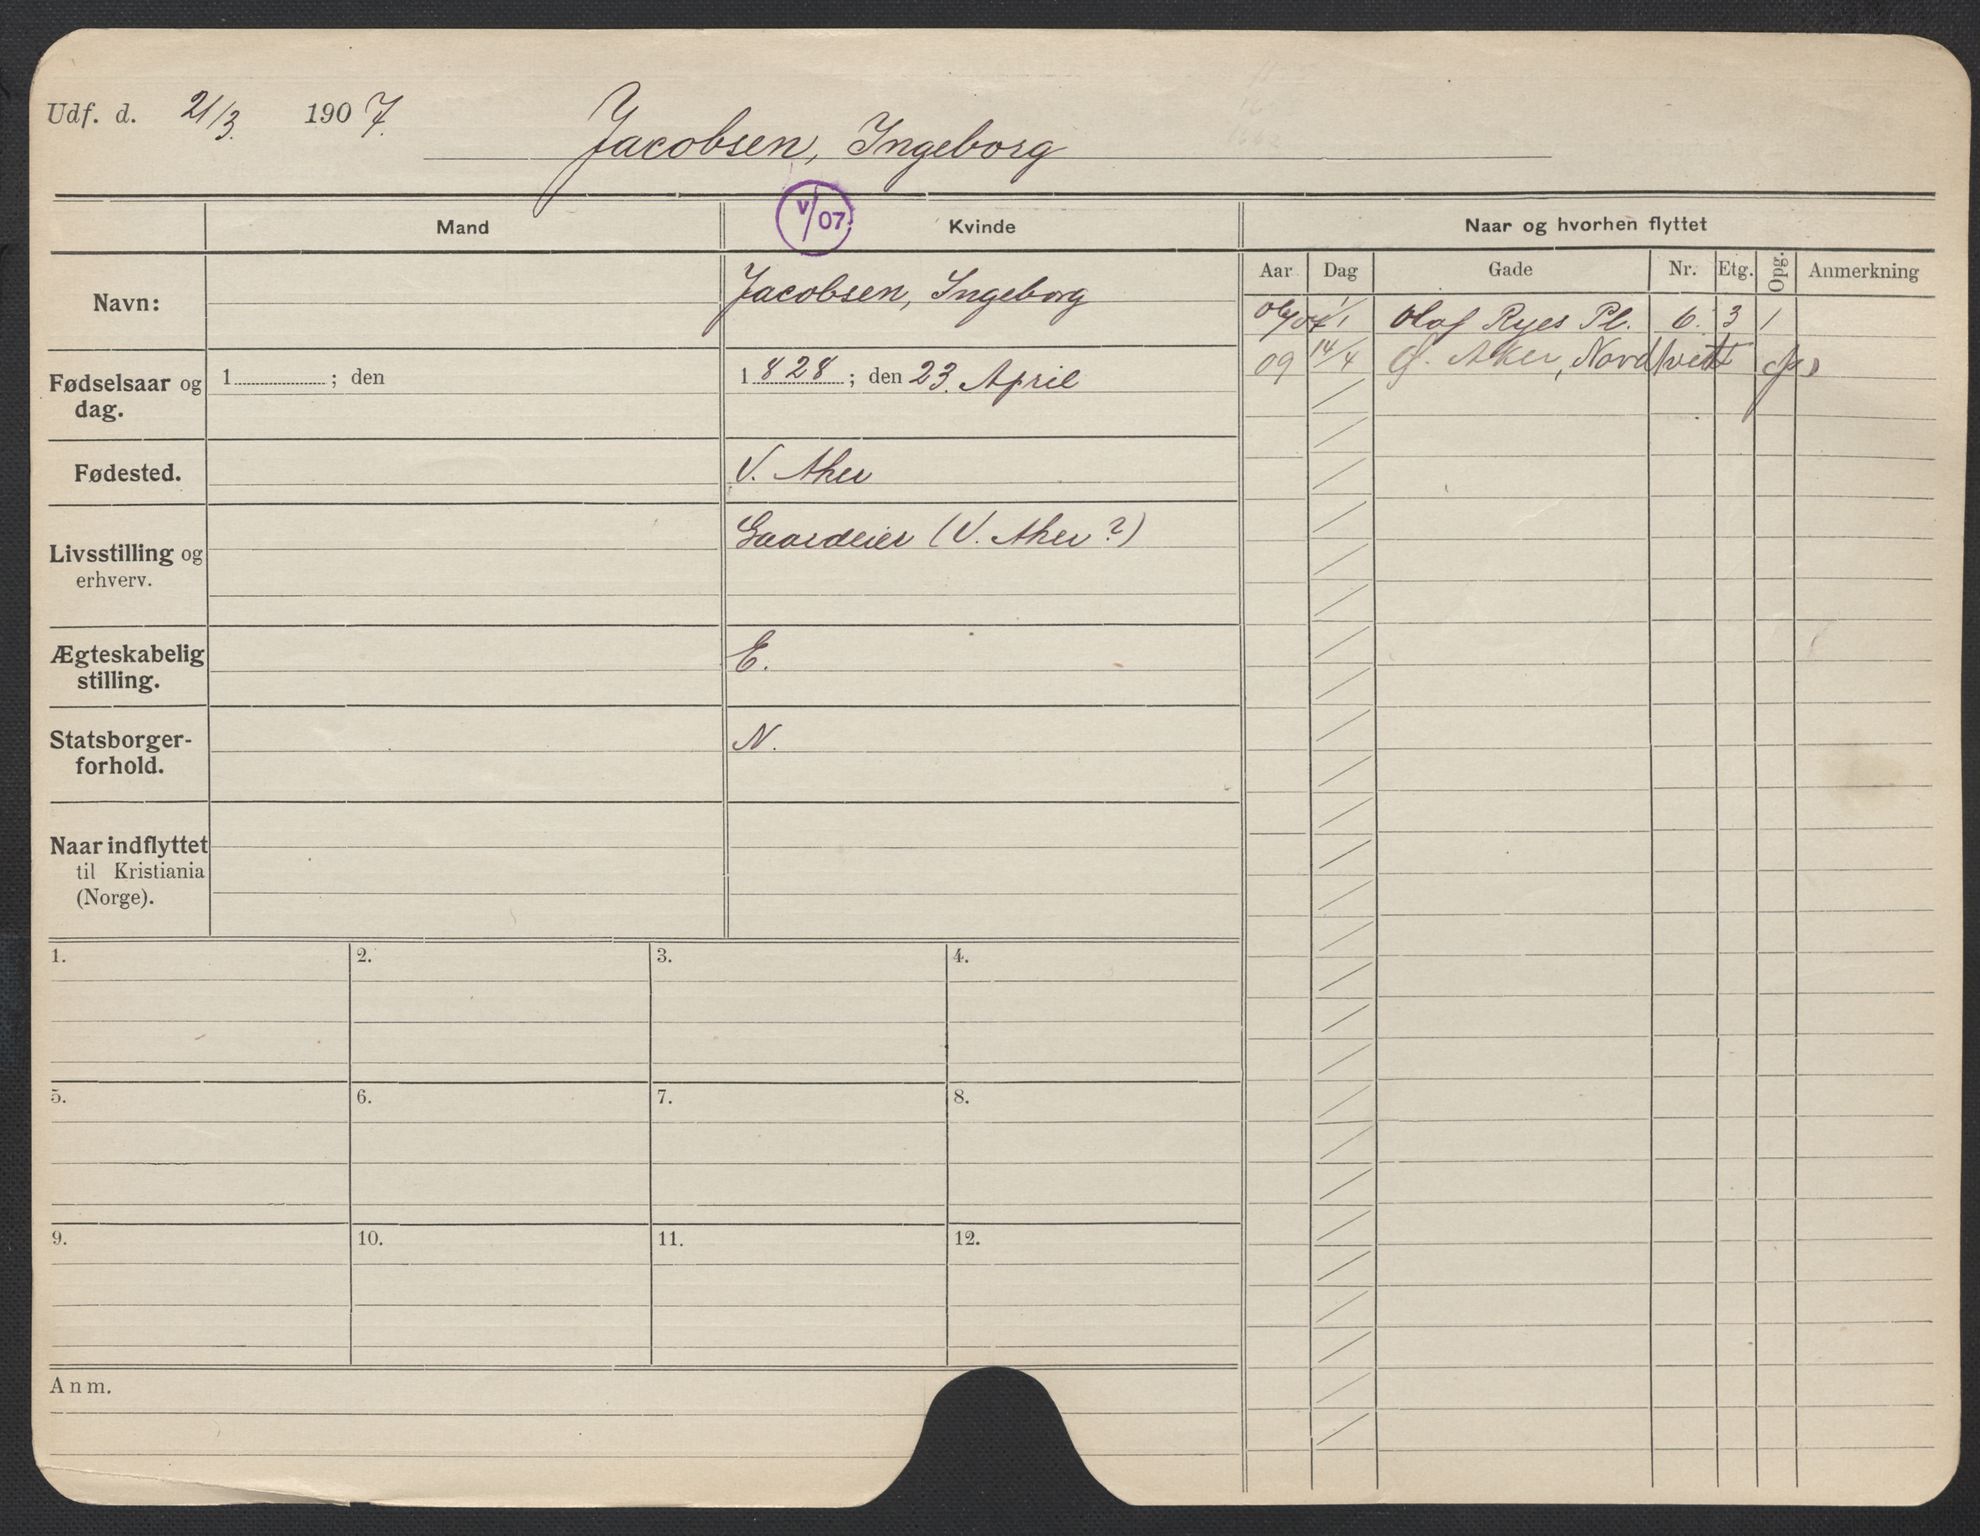 Udf. d. 21/3. 1907.
Jacobsen, Ingeborg
V/07.
Mand Kvinde Naar og hvorhen flyttet
Aar Dag Gade Nr. Etg. Opg. Anmerkning
Navn: Jacobsen, Ingeborg
1/1 Olaf Ryes Pl. 6. 3 1
09 14/4 Ø. Aker, Nordtvett
Fødselsaar og dag. 1 ; den 1828; den 23. April
Fødested. V. Aker
Livsstilling og erhverv. Gaardeier (V. Aker?)
Ægteskabelig stilling. E.
Statsborgerforhold. N.
Naar indflyttet
til Kristiania
(Norge).
1. 2. 3. 4.
5. 6. 7. 8.
9. 10. 11. 12.
Anm.